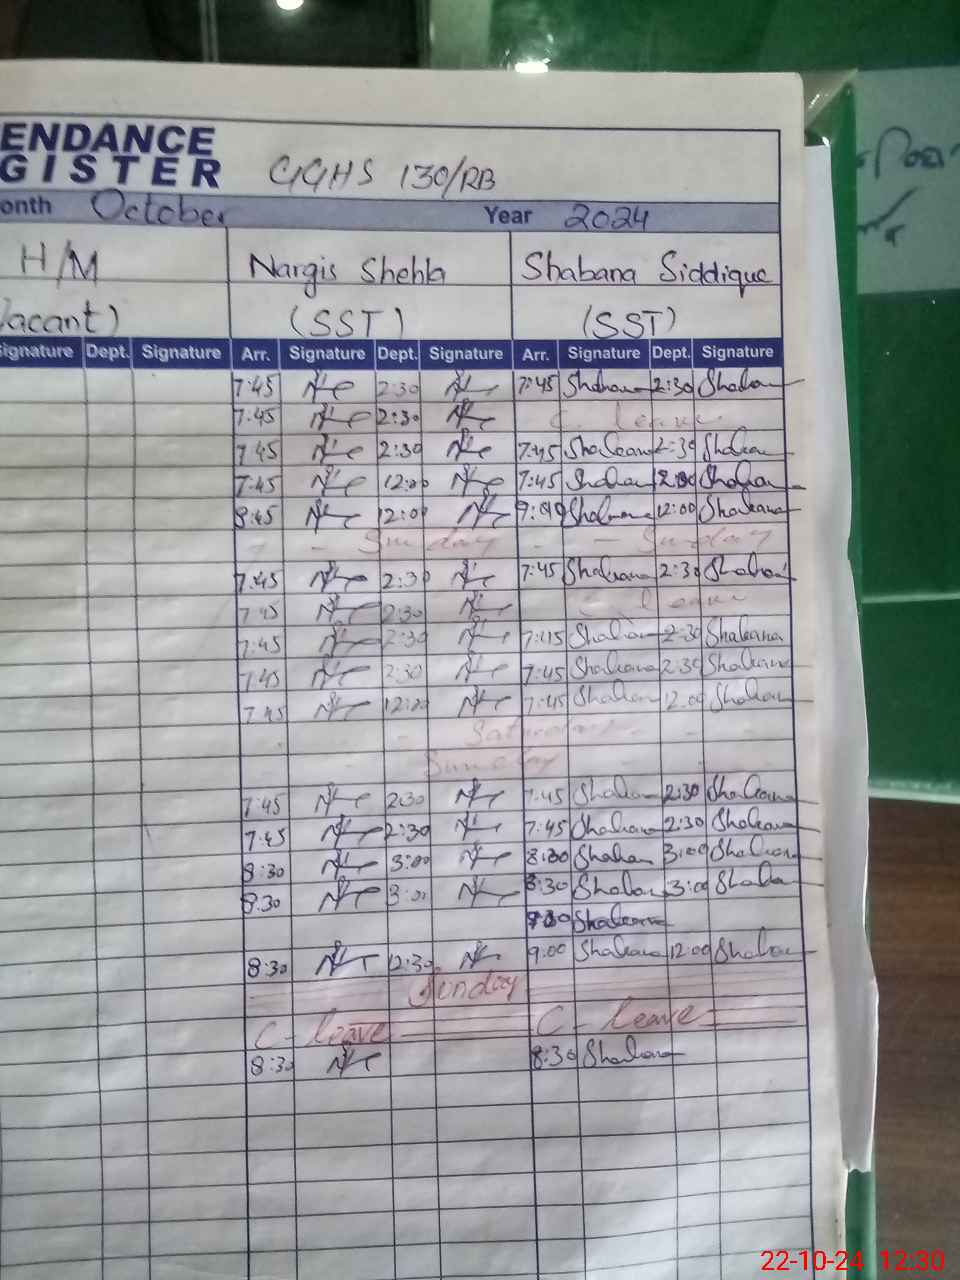 ENDANCE
GISTER GGHS 130/RB
onth October Year 2024
H/M Nargis Shehla Shabana Siddique
acant) (SST) (SST)
Signature Dept. Signature Arr. Signature Dept. Signature Arr. Signature Dept. Signature
7:45 2:30 7:45 Shabana 2:30 Shabana
7:45 2:30 C. leave
7:45 2:30 7:45 Shabana 2:30 Shabana
7:45 12:00 7:45 Shabana 12:00 Shabana
8:45 12:00 9:00 Shabana 12:00 Shabana
- Sunday - - Sunday
7:45 2:30 7:45 Shabana 2:30 Shabana
7:45 2:30 C leave
7:45 2:30 7:45 Shabana 2:30 Shabana
7:45 2:30 7:45 Shabana 2:30 Shabana
7:45 12:00 7:45 Shabana 12:00 Shabana
Saturday
Sunday
7:45 2:30 7:45 Shabana 2:30 Shabana
7:45 2:30 7:45 Shabana 2:30 Shabana
8:30 3:00 8:30 Shabana 3:00 Shabana
8:30 3:00 8:30 Shabana 3:00 Shabana
Shabana
8:30 12:30 9:00 Shabana 12:00 Shabana
Sunday
C - leave C - leave
8:30 8:30 Shabana
22-10-24 12:30